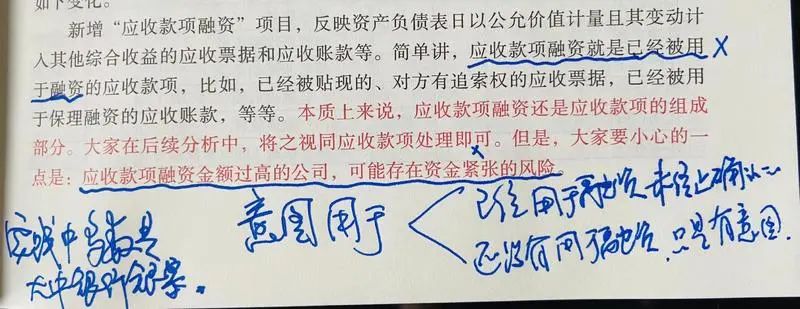 如下变化。
新增“应收款项融资”项目，反映资产负债表日以公允价值计量且其变动计
入其他综合收益的应收票据和应收账款等。简单讲，应收款项融资就是已经被用 ×
于融资的应收款项，比如，已经被贴现的、对方有追索权的应收票据，已经被用
于保理融资的应收账款，等等。本质上来说，应收款项融资还是应收款项的组成
部分。大家在后续分析中，将之视同应收款项处理即可。但是，大家要小心的一
点是：应收款项融资金额过高的公司，可能存在资金紧张的风险。
×
意图用于
已经用于融资 未终止确认
还没有用于融资，只是有意图.
实践中多数是
大中银行银票。